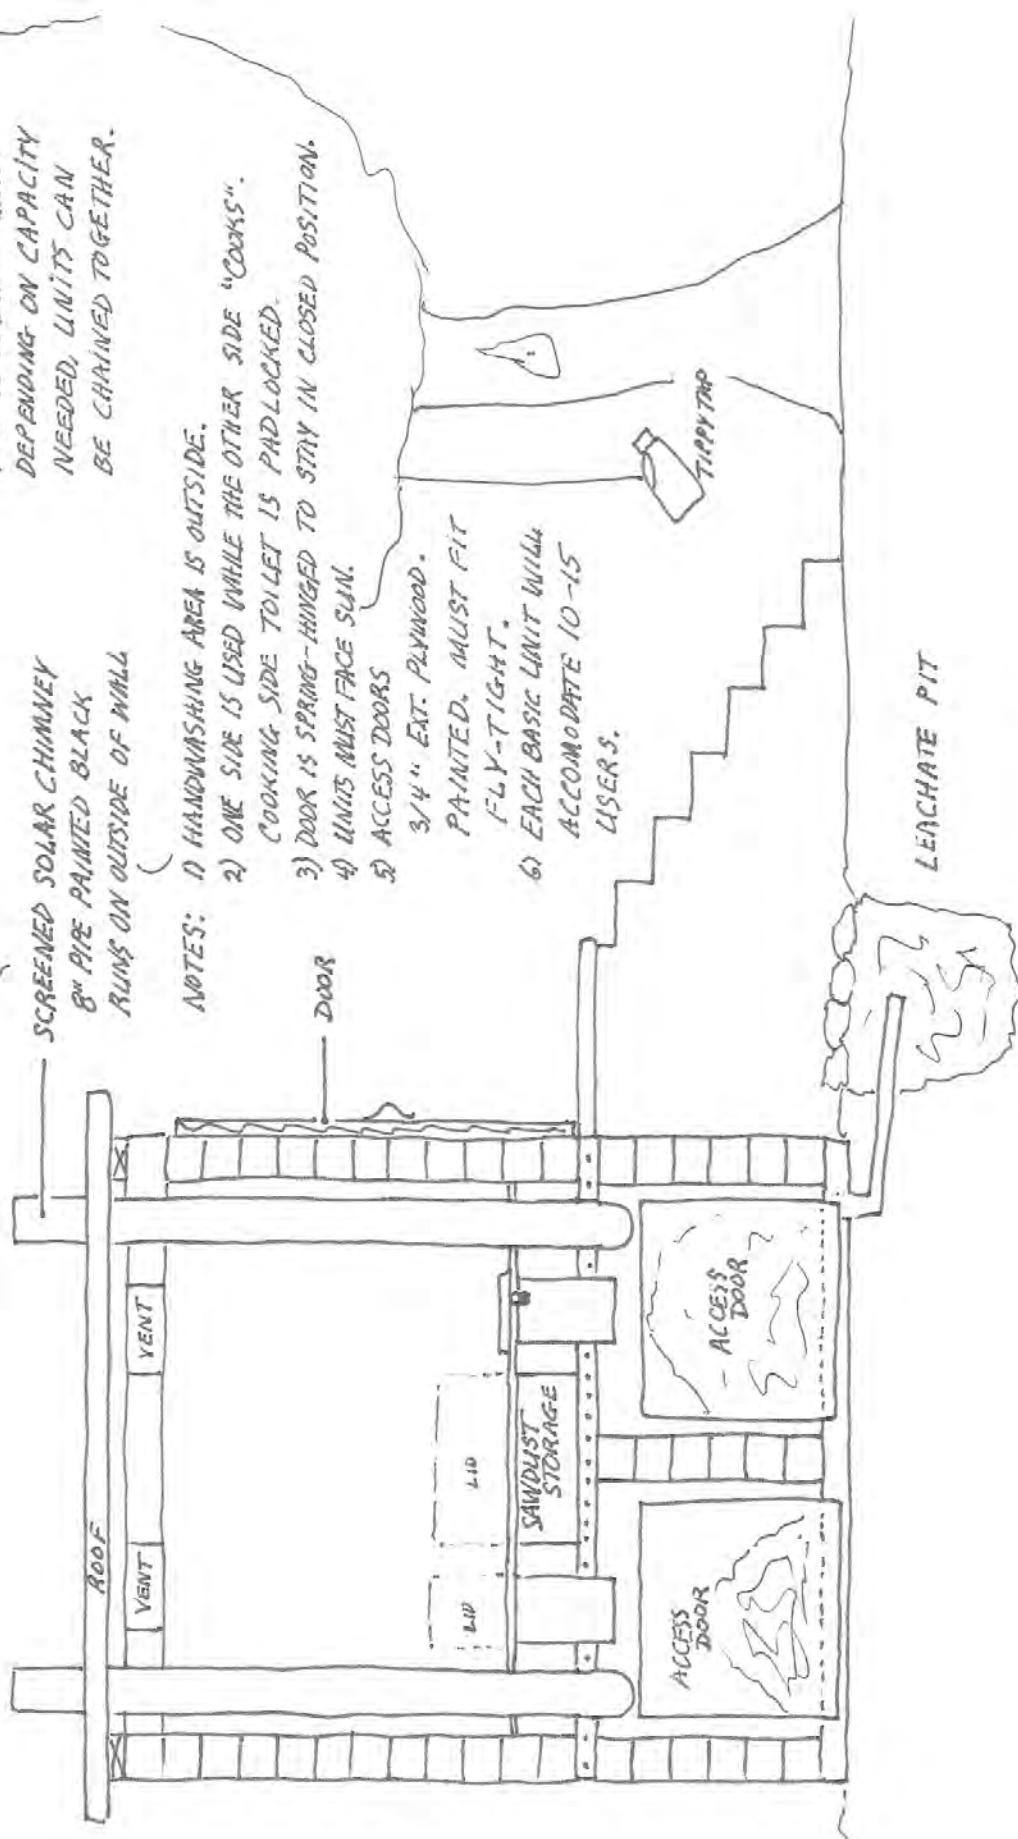 DEPENDING ON CAPACITY
NEEDED, UNITS CAN
BE CHAINED TOGETHER.
SCREENED SOLAR CHIMNEY
8" PIPE PAINTED BLACK
RUNS ON OUTSIDE OF WALL
NOTES: 1) HANDWASHING AREA IS OUTSIDE.
2) ONE SIDE IS USED WHILE THE OTHER SIDE "COOKS".
COOKING SIDE TOILET IS PADLOCKED.
3) DOOR IS SPRING-HINGED TO STAY IN CLOSED POSITION.
4) UNITS MUST FACE SUN.
5) ACCESS DOORS
3/4" EXT. PLYWOOD.
PAINTED. MUST FIT
FLY-TIGHT.
6) EACH BASIC UNIT WILL
ACCOMODATE 10-15
USERS.
DOOR
ROOF
VENT
VENT
LID
LID
SAWDUST
STORAGE
ACCESS
DOOR
ACCESS
DOOR
TIPPY TAP
LEACHATE PIT